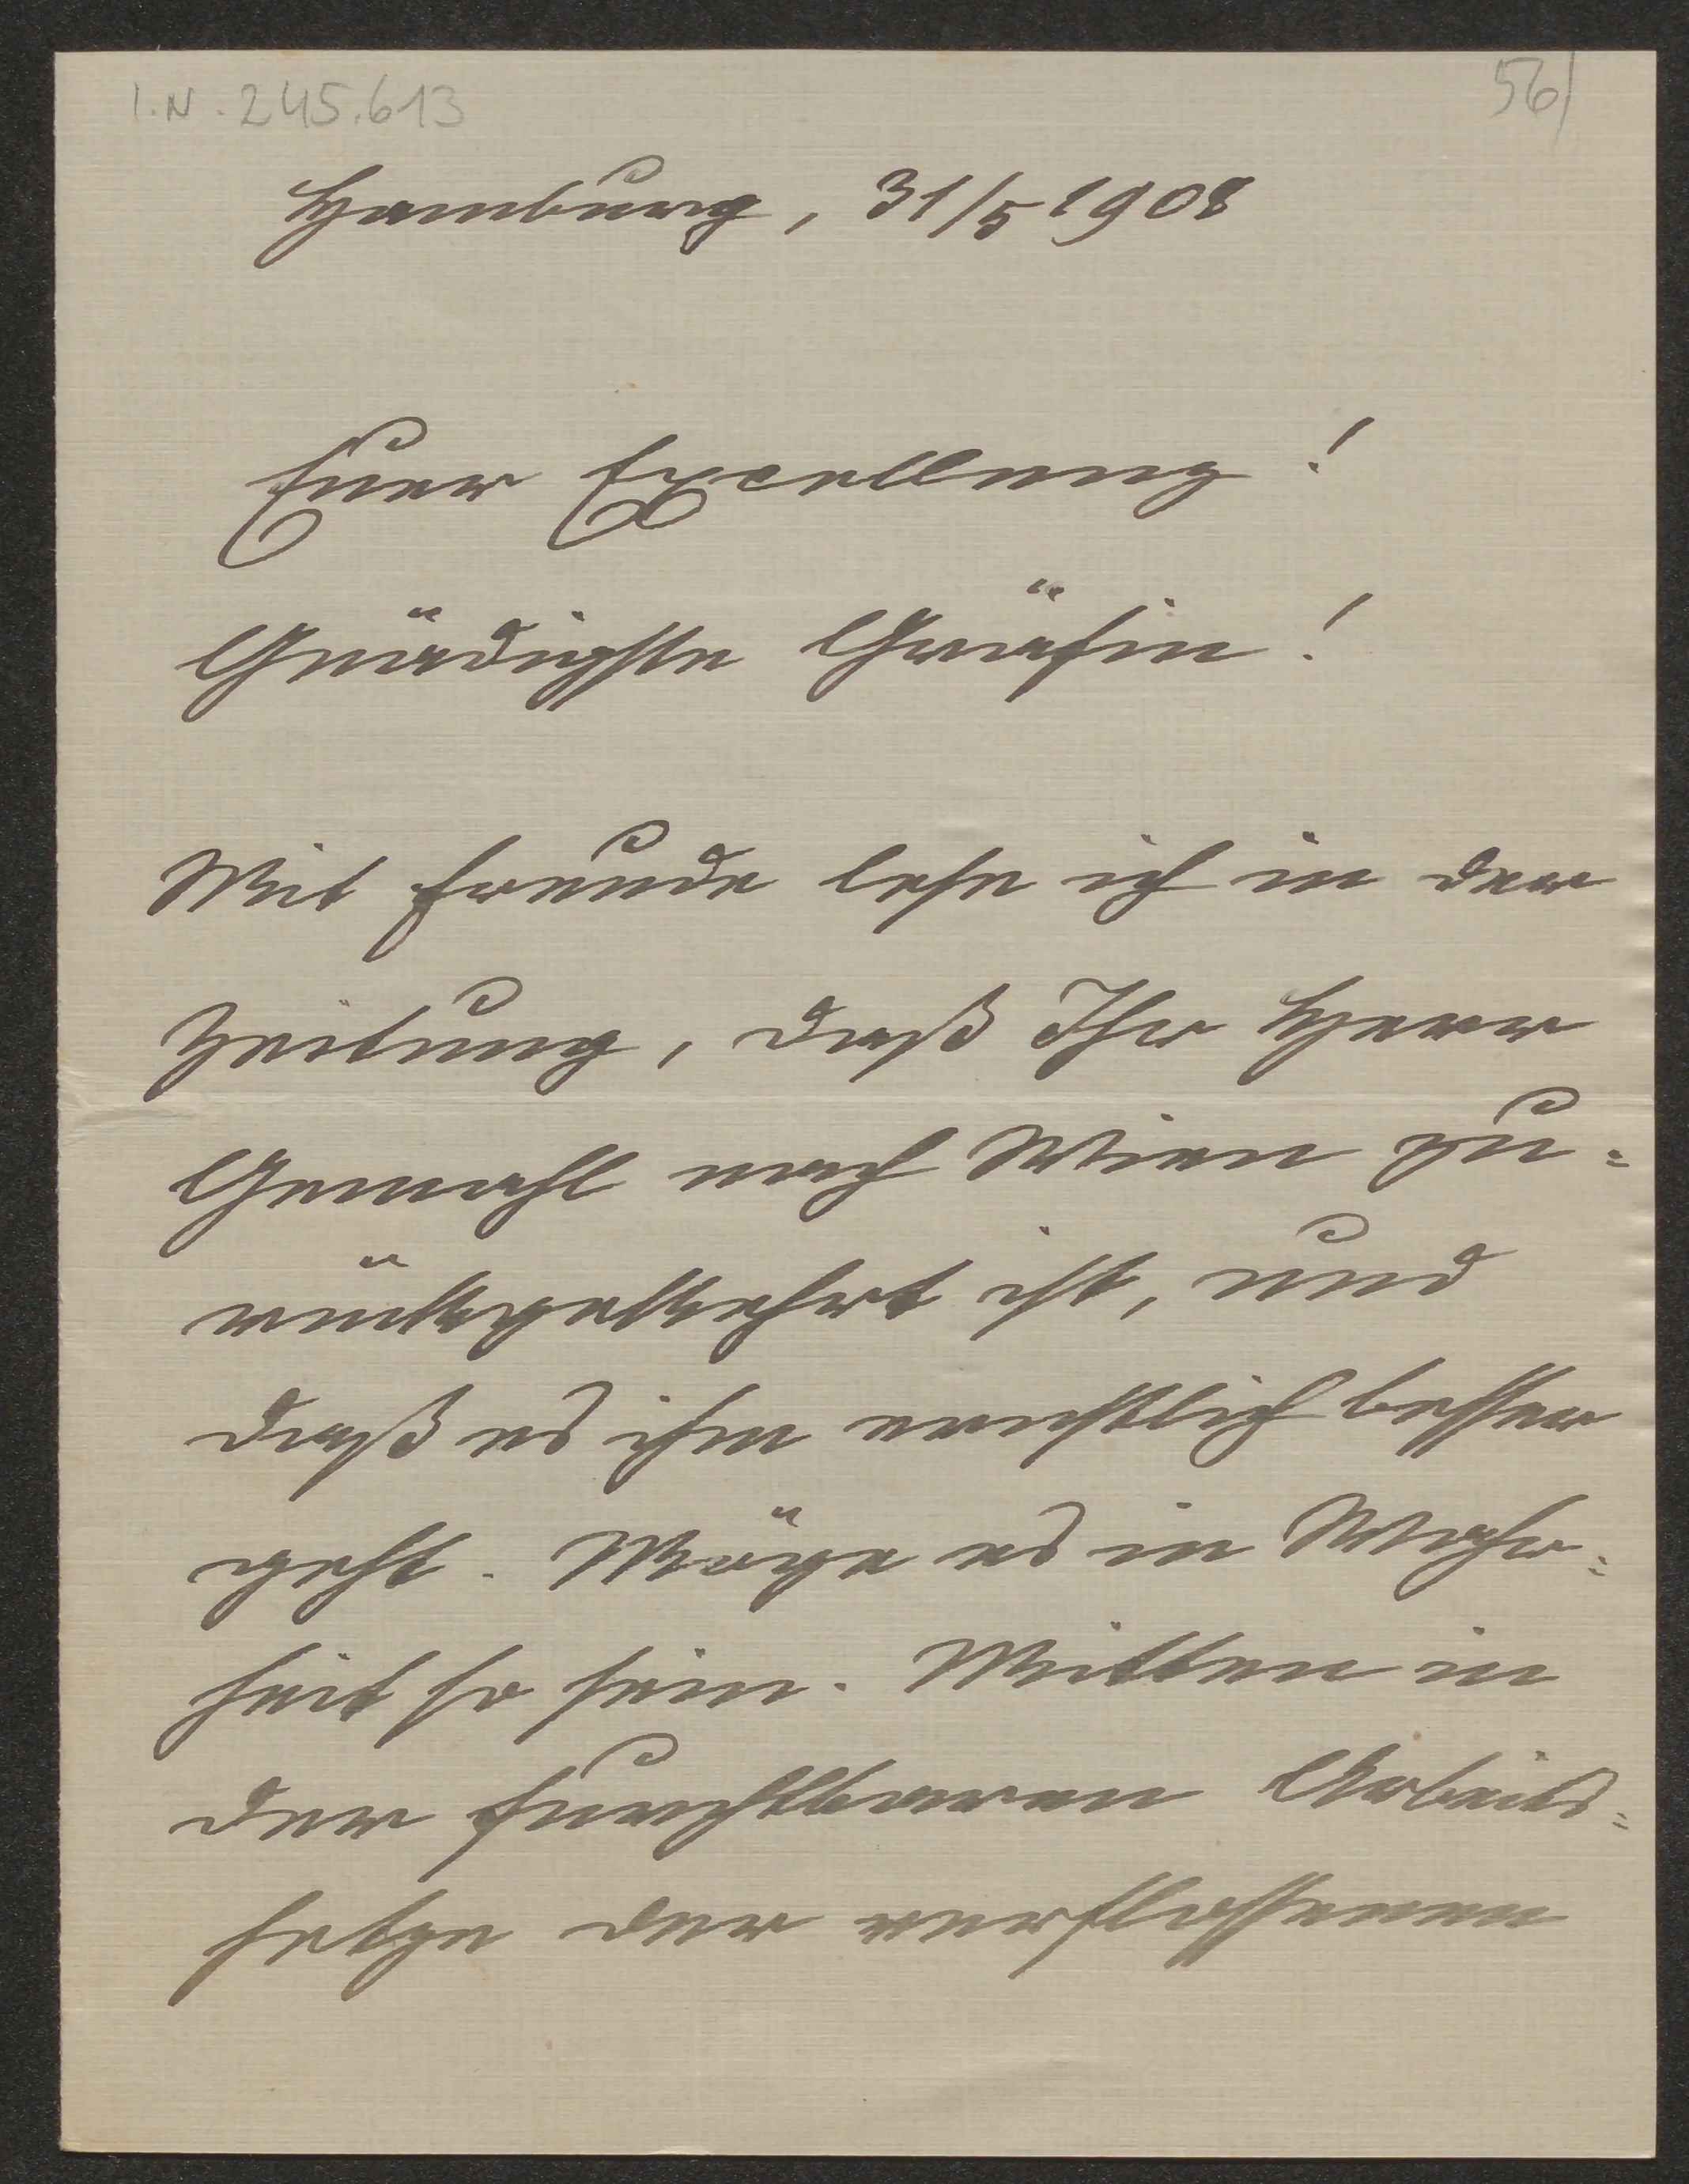 I.N. 245.613
56/
Hamburg, 31/5 1908
Euer Excellenz!
Gnädigste Gräfin!
Mit Freude lese ich in der
Zeitung, daß Ihr Herr
Gemahl nach Wien zu=
rückgekehrt ist, und
daß es ihm ernstlich besser
geht. Möge es in Wahr=
heit so sein. Mitten in
der furchtbaren Arbeits=
hetze der verflossenen